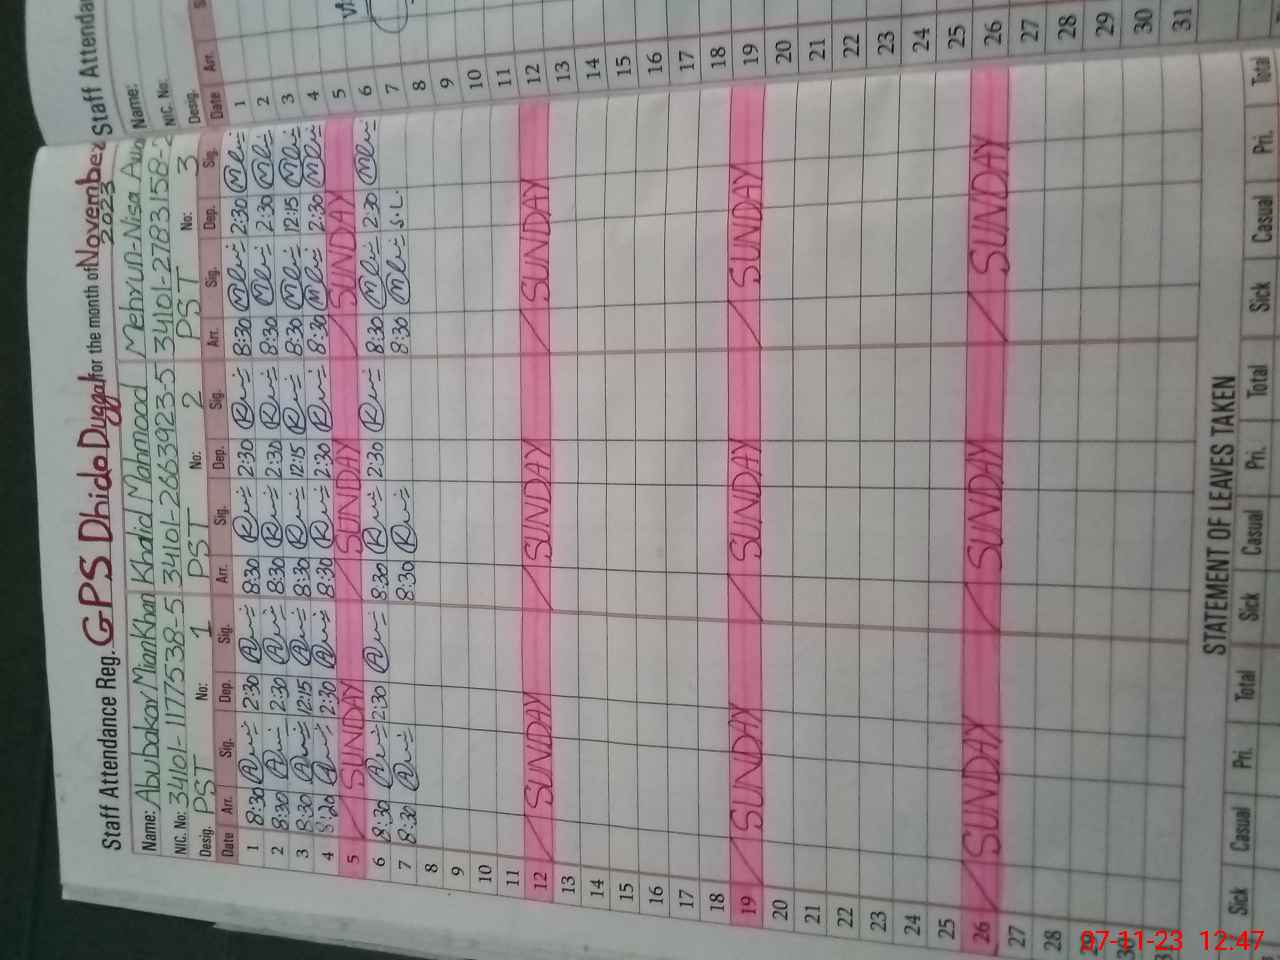 Staff Attendance Reg. GPS Dhido Duggal for the month of November 2023
Name: Abubakar Mian Khan Khalid Mahmood Mehrun-Nisa
NIC. No: 34101-1177538-5 34101-2663923-5 34101-2783158-
Desig. PST No: 1 PST No: 2 PST No: 3
Date Arr. Sig. Dep. Sig. Arr. Sig. Dep. Sig. Arr. Sig. Dep. Sig.
1 8:30 2:30 8:30 2:30 8:30 2:30
2 8:30 2:30 8:30 2:30 8:30 2:30
3 8:30 12:15 8:30 12:15 8:30 12:15
4 8:20 2:30 8:30 2:30 8:30 2:30
5 SUNDAY SUNDAY SUNDAY
6 8:30 2:30 8:30 2:30 8:30 2:30
7 8:30 8:30 8:30 S.L.
8
9
10
11
12 SUNDAY SUNDAY SUNDAY
13
14
15
16
17
18
19 SUNDAY SUNDAY SUNDAY
20
21
22
23
24
25
26 SUNDAY SUNDAY SUNDAY
27
28
29
30
STATEMENT OF LEAVES TAKEN
Sick Casual Pri. Total Sick Casual Pri. Total Sick Casual Pri. Total
Staff Attendan
Name:
NIC. No:
Desig.
Date Arr.
1
2
3
4
5
6
7
8
9
10
11
12
13
14
15
16
17
18
19
20
21
22
23
24
25
26
27
28
29
30
31
07-11-23 12:47